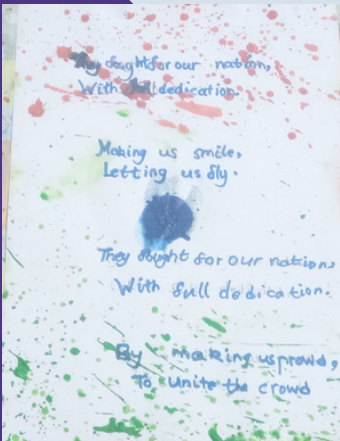 They fought for our nation,
With full dedication.
Making us smile,
Letting us fly.
They fought for our nation,
With full dedication.
By making us proud,
To unite the crowd